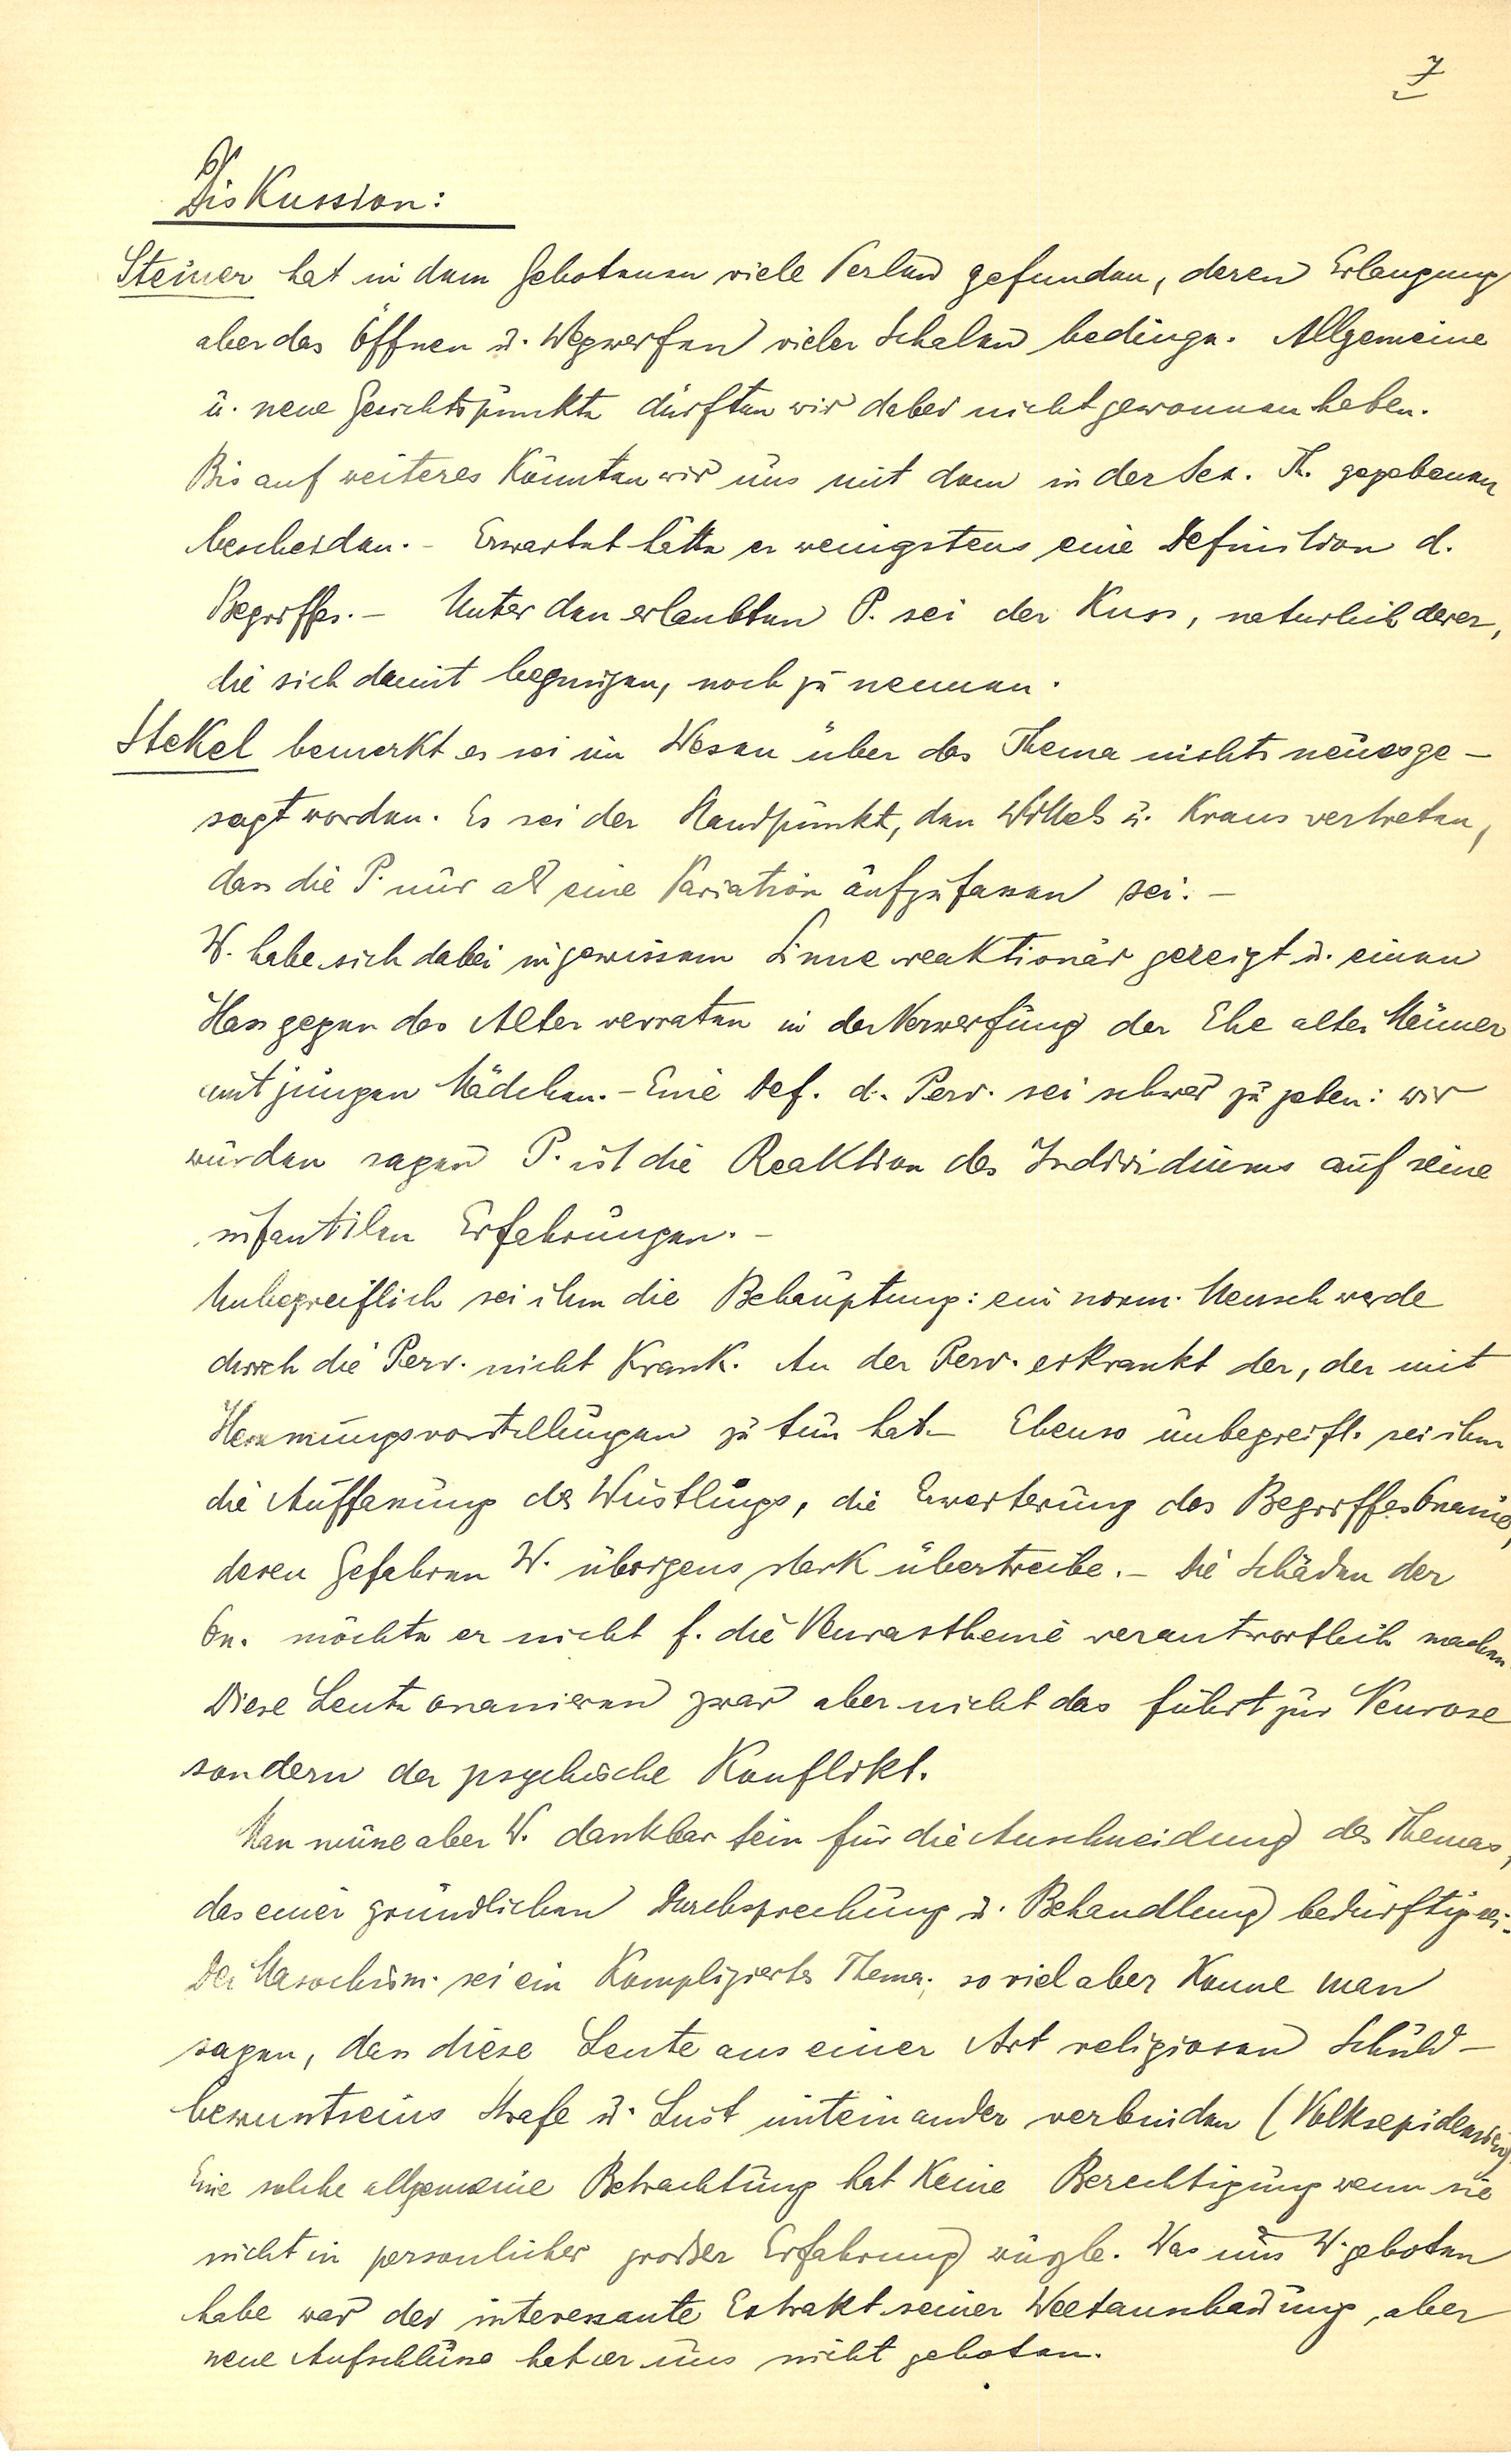 7
Diskussion:
Steiner hat in dem Gebotenen viele Perlen gefunden, deren Erlangung
aber das Öffnen u. Wegwerfen vieler Schalen bedinge. Allgemeine
u. neue Gesichtspunkte dürften wir dabei nicht gewonnen haben.
Bis auf weiteres könnten wir uns mit dem in der Sex. Th. gegebenen
bescheiden. – Erwartet hätte er wenigstens eine Definition d.
Begriffes. – Unter den erlaubten P. sei der Kuss, natürlich derer,
die sich damit begnügen, noch zu nennen.
Stekel bemerkt es sei im Wesen über das Thema nichts neues ge-
sagt worden. Es sei der Standpunkt, den Wittels u. Kraus vertreten,
dass die P. nur als eine Variation aufzufassen sei. –
W. habe sich dabei in gewissem Sinne reaktionär gezeigt u. einen
Hass gegen das Alter verraten in der Verwerfung der Ehe alter Männer
mit jungen Mädchen. – Eine Def. d. Perv. sei schwer zu geben: wir
würden sagen P. ist die Reaktion des Individuums auf seine
infantilen Erfahrungen. –
Unbegreiflich sei ihm die Behauptung: ein norm. Mensch werde
durch die Perv. nicht krank. An der Perv. erkrankt der, der mit
Hemmungsvorstellungen zu tun hat. – Ebenso unbegreifl. sei ihm
die Auffassung des Wüstlings, die Erweiterung des Begriffes Onanie,
deren Gefahren W. übrigens stark übertreibe. – Die Schäden der
On. möchte er nicht f. die Neurasthenie verantwortlich machen
Diese Leute onanieren zwar aber nicht das führt zur Neurose
sondern der psychische Konflikt.
Man müsse aber W. dankbar sein für die Anschneidung des Themas,
das einer gründlichen Durchsprechung u. Behandlung bedürftig sei. –
Der Masochism. sei ein kompliziertes Thema; so viel aber könne man
sagen, dass diese Leute aus einer Art religiösen Schuld-
bewusstseins Strafe u. Lust miteinander verbinden (Volksepidemien)
Eine solche allgemeine Betrachtung hat keine Berechtigung wenn sie
nicht in persönlicher großer Erfahrung wurzle. Was uns W. geboten
habe war der interessante Extrakt seiner Weltanschauung, aber
neue Aufschlüsse hat er uns nicht geboten.